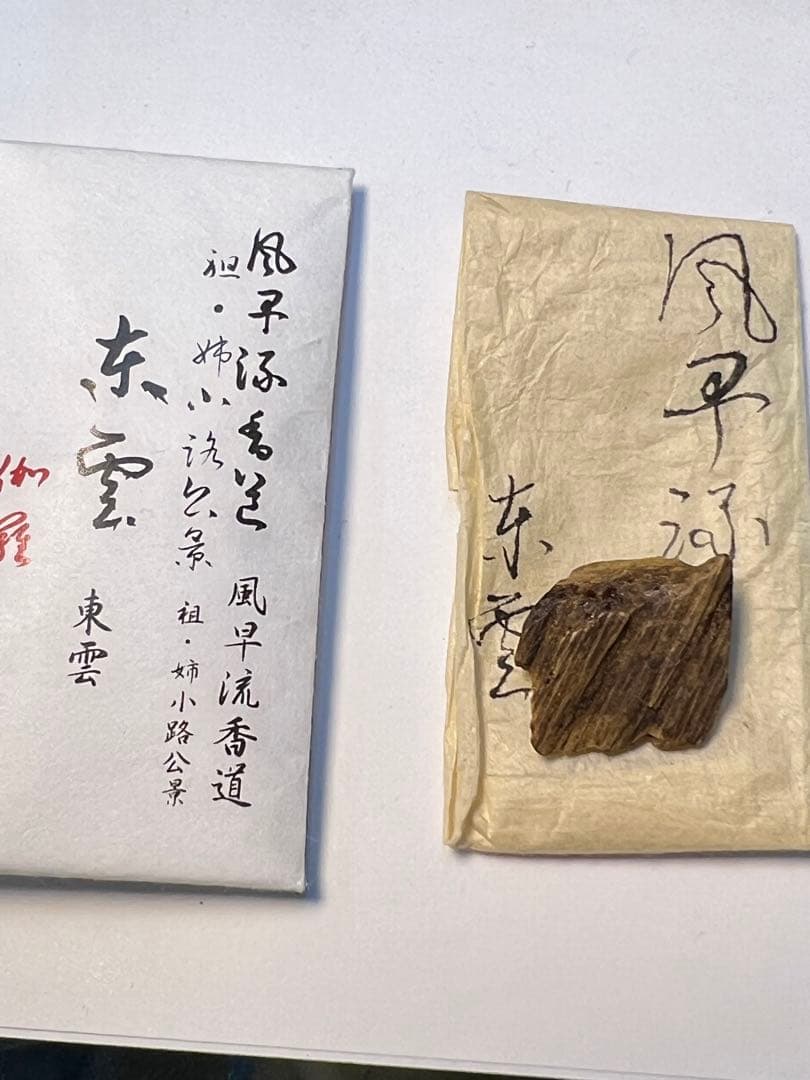 風早流香道 風早流香道
祖・姉小路公景 祖・姉小路公景
東雲 東雲
伽羅
風早流
東雲